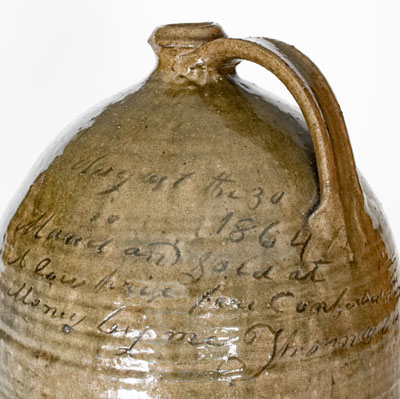 August the 30
1864
Maad and Sold at
low prise free Confed
Money by me Thomas